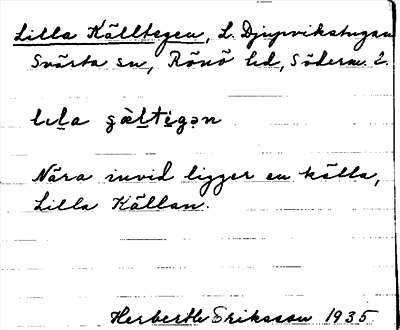 Lilla Källtegen, L. Djupvikstugan
Svärta sn, Rönö hd, Söderm. l.
Nära invid ligger en källa,
Lilla Källan.
Herberth Eriksson 1935.